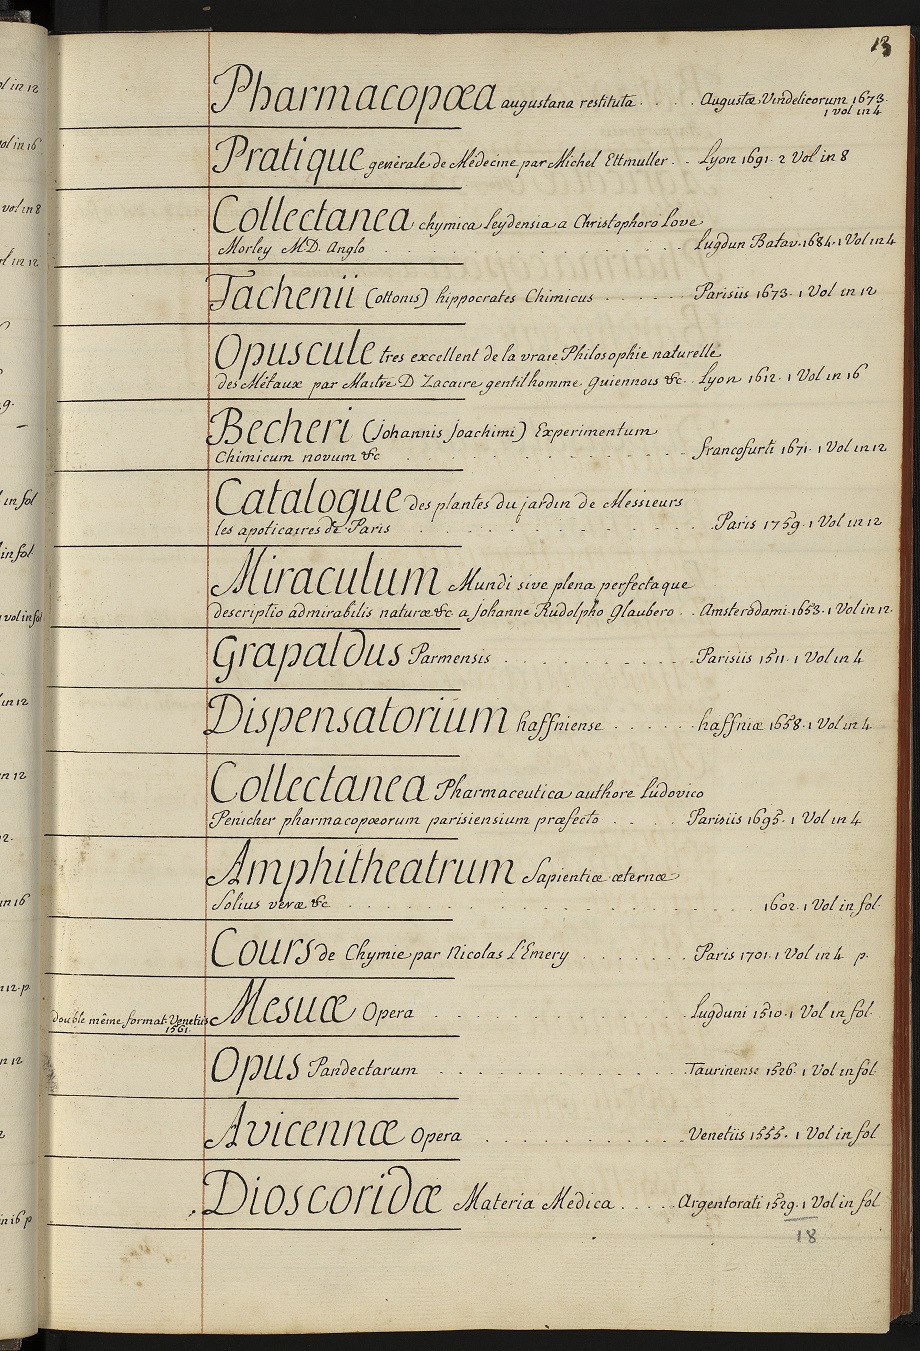 13
Pharmacopœa augustana restituta . . . . Augustæ Vindelicorum 1673.
1 vol in 4
Pratique generale de Médecine par Michel Ettmuller . . Lyon 1691. 2 Vol in 8
Collectanea chymica Leydensia a Christophoro Love
Morley M.D. Anglo . . . . . . . . . . Lugdun Batav. 1684. 1 Vol in 4
Tachenii (ottonis) hippocrates Chimicus . . . . . . Parisiis 1673. 1 Vol in 12
Opuscule tres excellent de la vraie Philosophie naturelle
des Métaux par Maitre D Zacaire gentilhomme guiennois &c. . Lyon 1612. 1 Vol in 16
Becheri (Johannis Joachimi) Experimentum
Chimicum novum &c . . . . . . . . . . francofurti 1671. 1 Vol in 12
Catalogue des plantes du jardin de Messieurs
les apoticaires de Paris . . . . . . . . . . Paris 1759. 1 Vol in 12
Miraculum Mundi sive plena perfectaque
descriptio admirabilis naturæ &c a Johanne Rudolpho Glaubero . . Amsterodami. 1653. 1 Vol in 12.
Grapaldus Parmensis . . . . . . . . . . Parisiis 1511. 1 Vol in 4
Dispensatorium haffniense . . . . . . haffniæ 1658. 1 Vol in 4
Collectanea Pharmaceutica authore Ludovico
Penicher pharmacopœorum parisiensium præfecto . . . . Parisiis 1695. 1 Vol in 4
Amphitheatrum Sapientiæ æternæ
Solius veræ &c . . . . . . . . . . 1602. 1 Vol in fol.
Cours de Chymie par Nicolas L'Emery . . . . . . . Paris 1701. 1 Vol in 4 p.
double même format. Venetiis
1561.
Mesuæ Opera . . . . . . . . . . Lugduni 1510. 1 Vol in fol.
Opus Pandectarum . . . . . . . . . . Taurinense 1526. 1 Vol in fol.
Avicennæ Opera . . . . . . . . . . Venetiis 1555. 1 Vol in fol
Dioscoridæ Materia Medica . . . . . Argentorati 1529. 1 Vol in fol
18